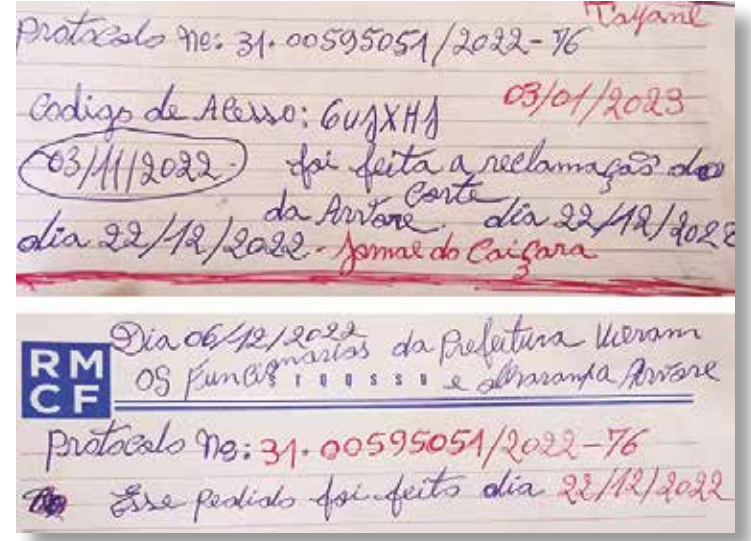 Tayane
Protocolo Nº: 31.00595051/2022-76
Codigo de Acesso: 6UJXHJ
03/01/2023
03/11/2022. foi feita a reclamação do
Corte
da Arvore. dia 22/12/2022
dia 22/12/2022 - Jornal do Caiçara
Dia 06/12/2022
RM
CF
OS Funcionarios da Prefeitura vieram
e Arvore
Protocolo Nº: 31.00595051/2022-76
Esse pedido foi feito dia 22/12/2022